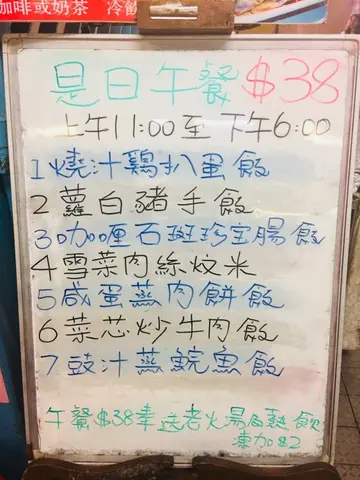 咖啡或奶茶 冷飲
是日午餐 $38
上午11:00至下午6:00
1燒汁鷄扒蛋飯
2蘿白豬手飯
3咖喱石斑珍宝腸飯
4雪菜肉絲炆米
5咸蛋蒸肉餅飯
6菜芯炒牛肉飯
7豉汁蒸鯇魚飯
午餐$38 送老火湯 熱飲
凍加$2